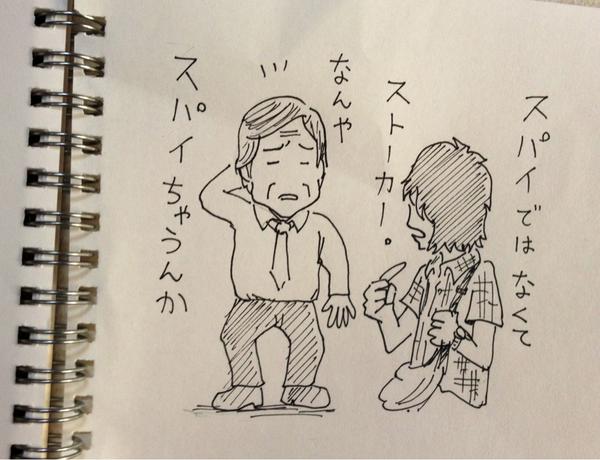 スパイではなくて
ストーカー。
なんや
スパイちゃうんか